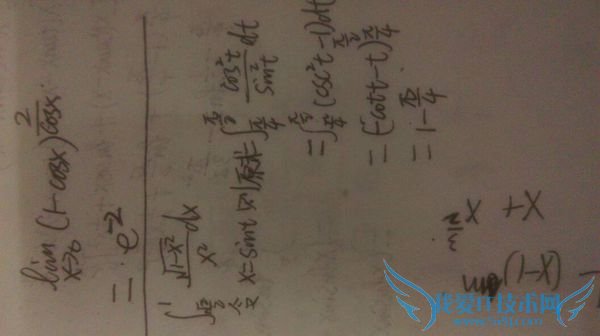 lim_{x→0} (1-cosx)^{\frac{2}{cosx}}
= e^{-2}
∫_{\frac{\sqrt{2}}{2}}^{1} \frac{\sqrt{1-x^2}}{x^2} dx
令x=sint 则原式=∫_{\frac{π}{4}}^{\frac{π}{2}} \frac{cos^2t}{sin^2t} dt
=∫_{\frac{π}{4}}^{\frac{π}{2}} (csc^2t-1)dt
=(-cott-t)_{\frac{π}{4}}^{\frac{π}{2}}
=1-\frac{π}{4}
x + x
(1-x)
我爱IT技术网